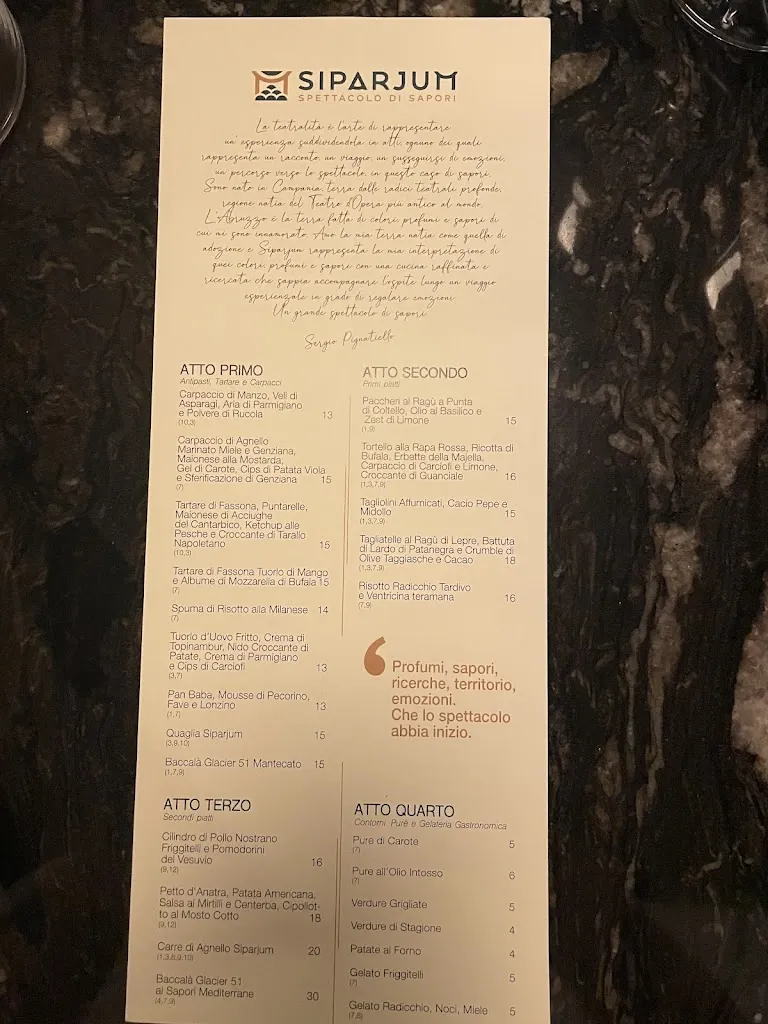 SIPARJUM
SPETTACOLO DI SAPORI
La teatralità è l'arte di rappresentare
un'esperienza suddividendola in atti, ognuno dei quali
rappresenta un racconto, un viaggio, un susseguirsi di emozioni,
un percorso verso lo spettacolo, in questo caso di sapori.
Sono nato in Campania, terra dalle radici teatrali profonde,
regione natia del Teatro d'Opera più antico al mondo.
L'Abruzzo è la terra fatta di colori, profumi e sapori di
cui mi sono innamorato. Amo la mia terra natia come quella di
adozione e Siparjum rappresenta la mia interpretazione di
quei colori, profumi e sapori con una cucina raffinata e
ricercata che sappia accompagnare l'ospite lungo un viaggio
esperienziale in grado di regalare emozioni.
Un grande spettacolo di sapori
Sergio Pignatiello
ATTO PRIMO
Antipasti, Tartare e Carpacci
Carpaccio di Manzo, Veli di
Asparagi, Aria di Parmigiano
e Polvere di Rucola 13
(10,3)
Carpaccio di Agnello
Marinato Miele e Genziana,
Maionese alla Mostarda,
Gel di Carote, Cips di Patata Viola
e Sferificazione di Genziana 15
(7)
Tartare di Fassona, Puntarelle,
Maionese di Acciughe
del Cantarbico, Ketchup alle
Pesche e Croccante di Tarallo
Napoletano 15
(10,3)
Tartare di Fassona Tuorlo di Mango
e Albume di Mozzarella di Bufala 15
(7)
Spuma di Risotto alla Milanese 14
(7)
Tuorlo d'Uovo Fritto, Crema di
Topinambur, Nido Croccante di
Patate, Crema di Parmigiano
e Cips di Carciofi 13
(3,7)
Pan Baba, Mousse di Pecorino,
Fave e Lonzino 13
(1,7)
Quaglia Siparjum 15
(3,9,10)
Baccalà Glacier 51 Mantecato 15
(1,7,9)
ATTO SECONDO
Primi piatti
Paccheri al Ragù a Punta
di Coltello, Olio al Basilico e
Zest di Limone 15
(1,9)
Tortello alla Rapa Rossa, Ricotta di
Bufala, Erbette della Majella,
Carpaccio di Carciofi e Limone,
Croccante di Guanciale 16
(1,3,7,9)
Tagliolini Affumicati, Cacio Pepe e
Midollo 15
(1,3,7,9)
Tagliatelle al Ragù di Lepre, Battuta
di Lardo di Patanegra e Crumble di
Olive Taggiasche e Cacao 18
(1,3,7,9)
Risotto Radicchio Tardivo
e Ventricina teramana 16
(7,9)
Profumi, sapori,
ricerche, territorio,
emozioni.
Che lo spettacolo
abbia inizio.
ATTO TERZO
Secondi piatti
Cilindro di Pollo Nostrano
Friggitelli e Pomodorini
del Vesuvio 16
(9,12)
Petto d'Anatra, Patata Americana,
Salsa ai Mirtilli e Centerba, Cipollot-
to al Mosto Cotto 18
(9,12)
Carre di Agnello Siparjum 20
(1,3,8,9,10)
Baccalà Glacier 51
ai Sapori Mediterrane 30
(4,7,9)
ATTO QUARTO
Contorni, Purè e Gelateria Gastronomica
Pure di Carote 5
(7)
Pure all'Olio Intosso 6
(7)
Verdure Grigliate 5
Verdure di Stagione 4
Patate al Forno 4
Gelato Friggitelli 5
(7)
Gelato Radicchio, Noci, Miele 5
(7,8)